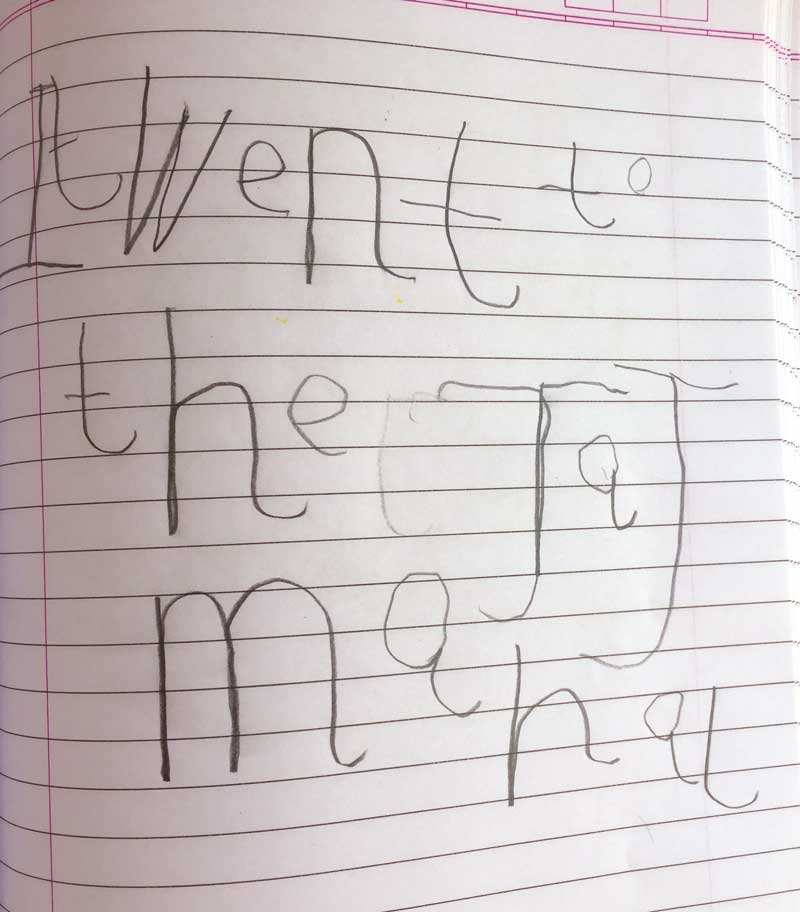 I went to
the Taj
mahal